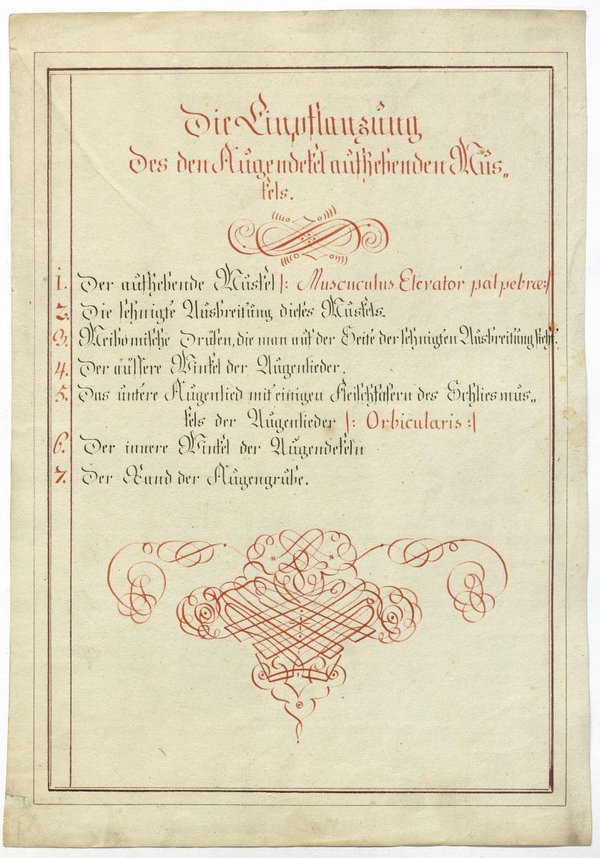 Die Einpflanzung
Des den Augendekel aufhebenden Mus„
kels.
1. Der aufhebende Muskel /: Muscuculus Elevator palpebræ:/
2. Die sehnigte Ausbreitung dieses Muskels.
3. Meibomische Drüsen, die man auf der Seite der sehnigten Ausbreitung sieht.
4. Der äussere Winkel der Augenlieder.
5. Das untere Augenlied mit einigen Fleischfasern des Schliesmus„
kels der Augenlieder /: Orbicularis :/
6. Der innere Winkel der Augendekeln
7. Der Rand der Augengrube.